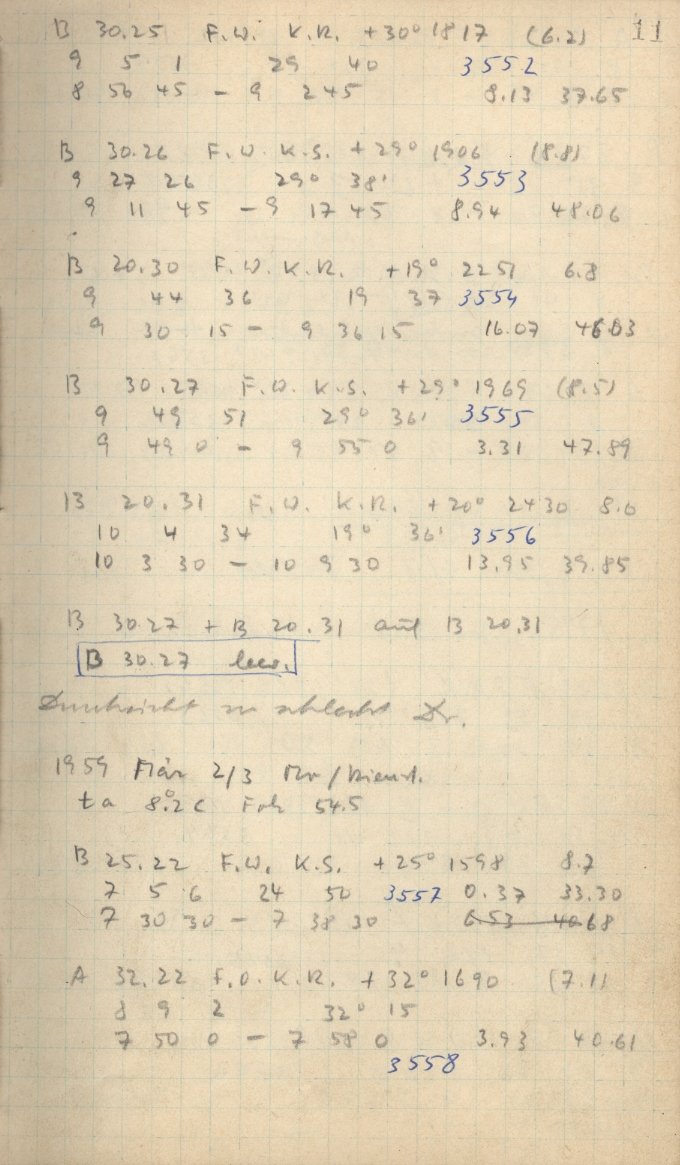 B 30.25 F.W. K.R. +30° 1817 (6.2) 11
9 5 1 29 40 3552
8 56 45 – 9 2 45 8.13 37.65
B 30.26 F.W. K.S. +29° 1906 (8.8)
9 27 26 29° 38' 3553
9 11 45 – 9 17 45 8.94 48.06
B 20.30 F.W. K.R. +19° 2251 6.8
9 44 36 19 37 3554
9 30 15 – 9 36 15 16.07 46.03
B 30.27 F.O. K.S. +29° 1969 (8.5)
9 49 51 29° 36' 3555
9 49 0 – 9 55 0 3.31 47.89
B 20.31 F.W. K.R. +20° 2430 8.0
10 4 34 19° 36' 3556
10 3 30 – 10 9 30 13.95 39.85
B 30.27 + B 20.31 auf B 20.31
B 30.27 leer.
Durchsicht zu schlecht Dr.
1959 März 2/3 Mo/Dienst.
8°.2 C 54.5
B 25.22 F.W. K.S. +25° 1598 8.7
7 5 6 24 50 3557 0.37 33.30
7 30 30 – 7 38 30 6.53 40.68
A 32.22 F.O. K.R. +32° 1690 (7.1)
8 9 2 32° 15
7 50 0 – 7 58 0 3.93 40.61
3558